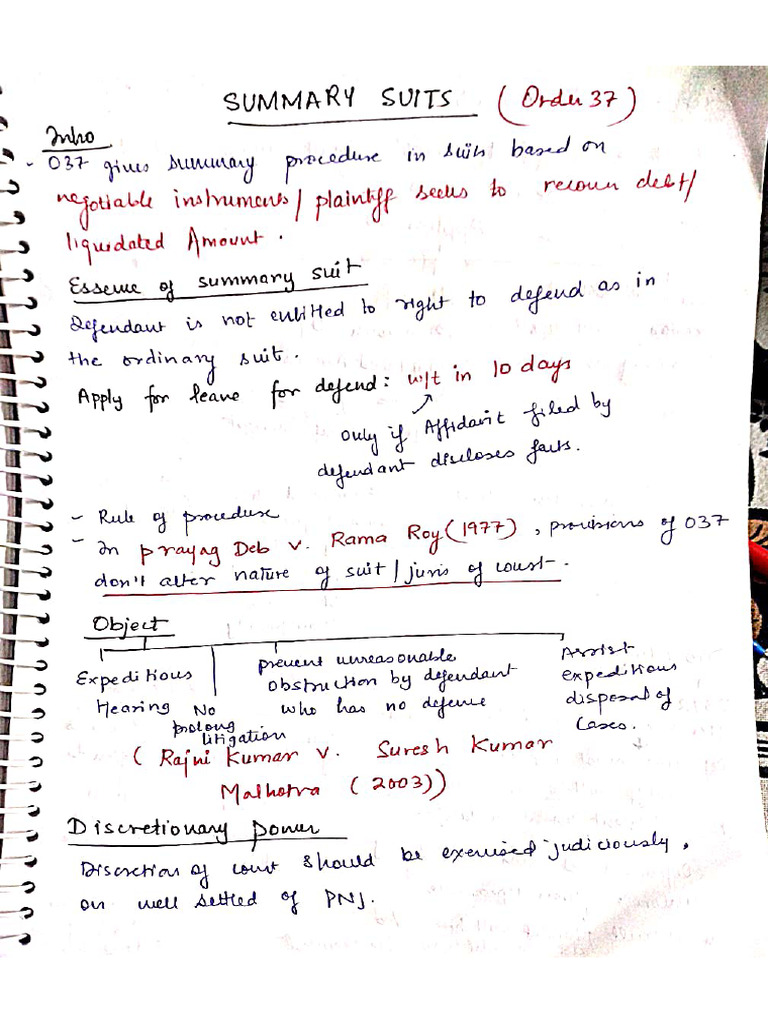 SUMMARY SUITS (Order 37)
Intro
- O37 gives summary procedure in suits based on
negotiable instruments/ plaintiff seeks to recover debt/
liquidated Amount.
Essence of summary suit
Defendant is not entitled to right to defend as in
the ordinary suit.
Apply for leave for defend: w/t in 10 days
only if Affidavit filed by
defendant discloses facts.
- Rule of procedure
- In prayag Deb v. Rama Roy (1977), provisions of O37
don't alter nature of suit/juris of court.
Object
Expeditious
Hearing
No
prolong
litigation
prevent unreasonable
obstruction by defendant
who has no defence
Assist
expeditious
disposal of
cases.
( Rajni Kumar v. Suresh Kumar
Malhotra (2003))
Discretionary power
Discretion of court should be exercised judiciously,
on well settled of PNJ.